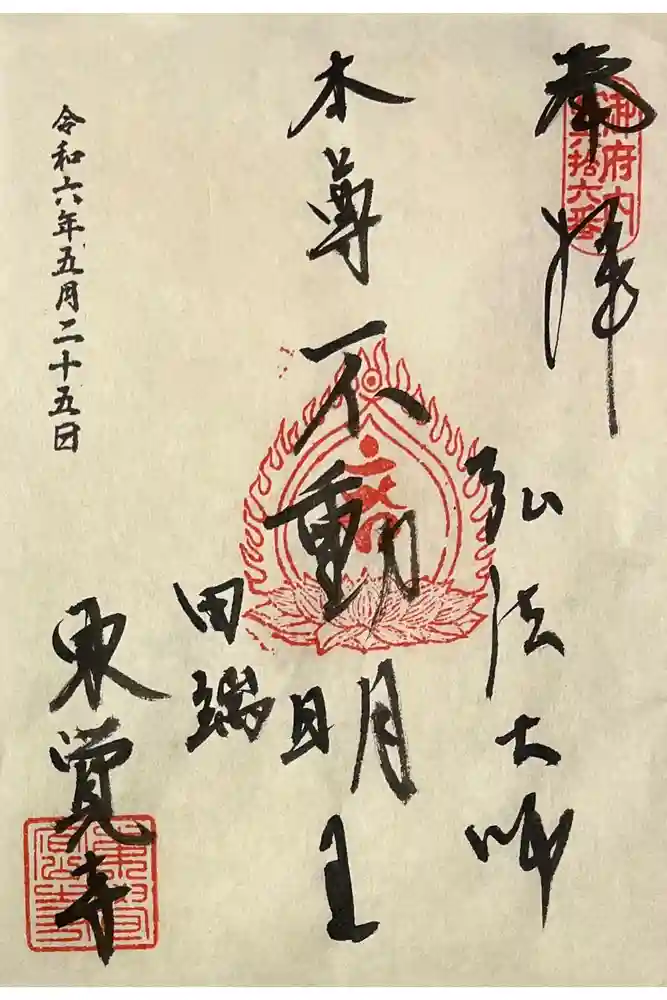 奉拝
御府内
第六拾六番
弘法大師
本尊
不動明王
田端
東覚寺
令和六年五月二十五日